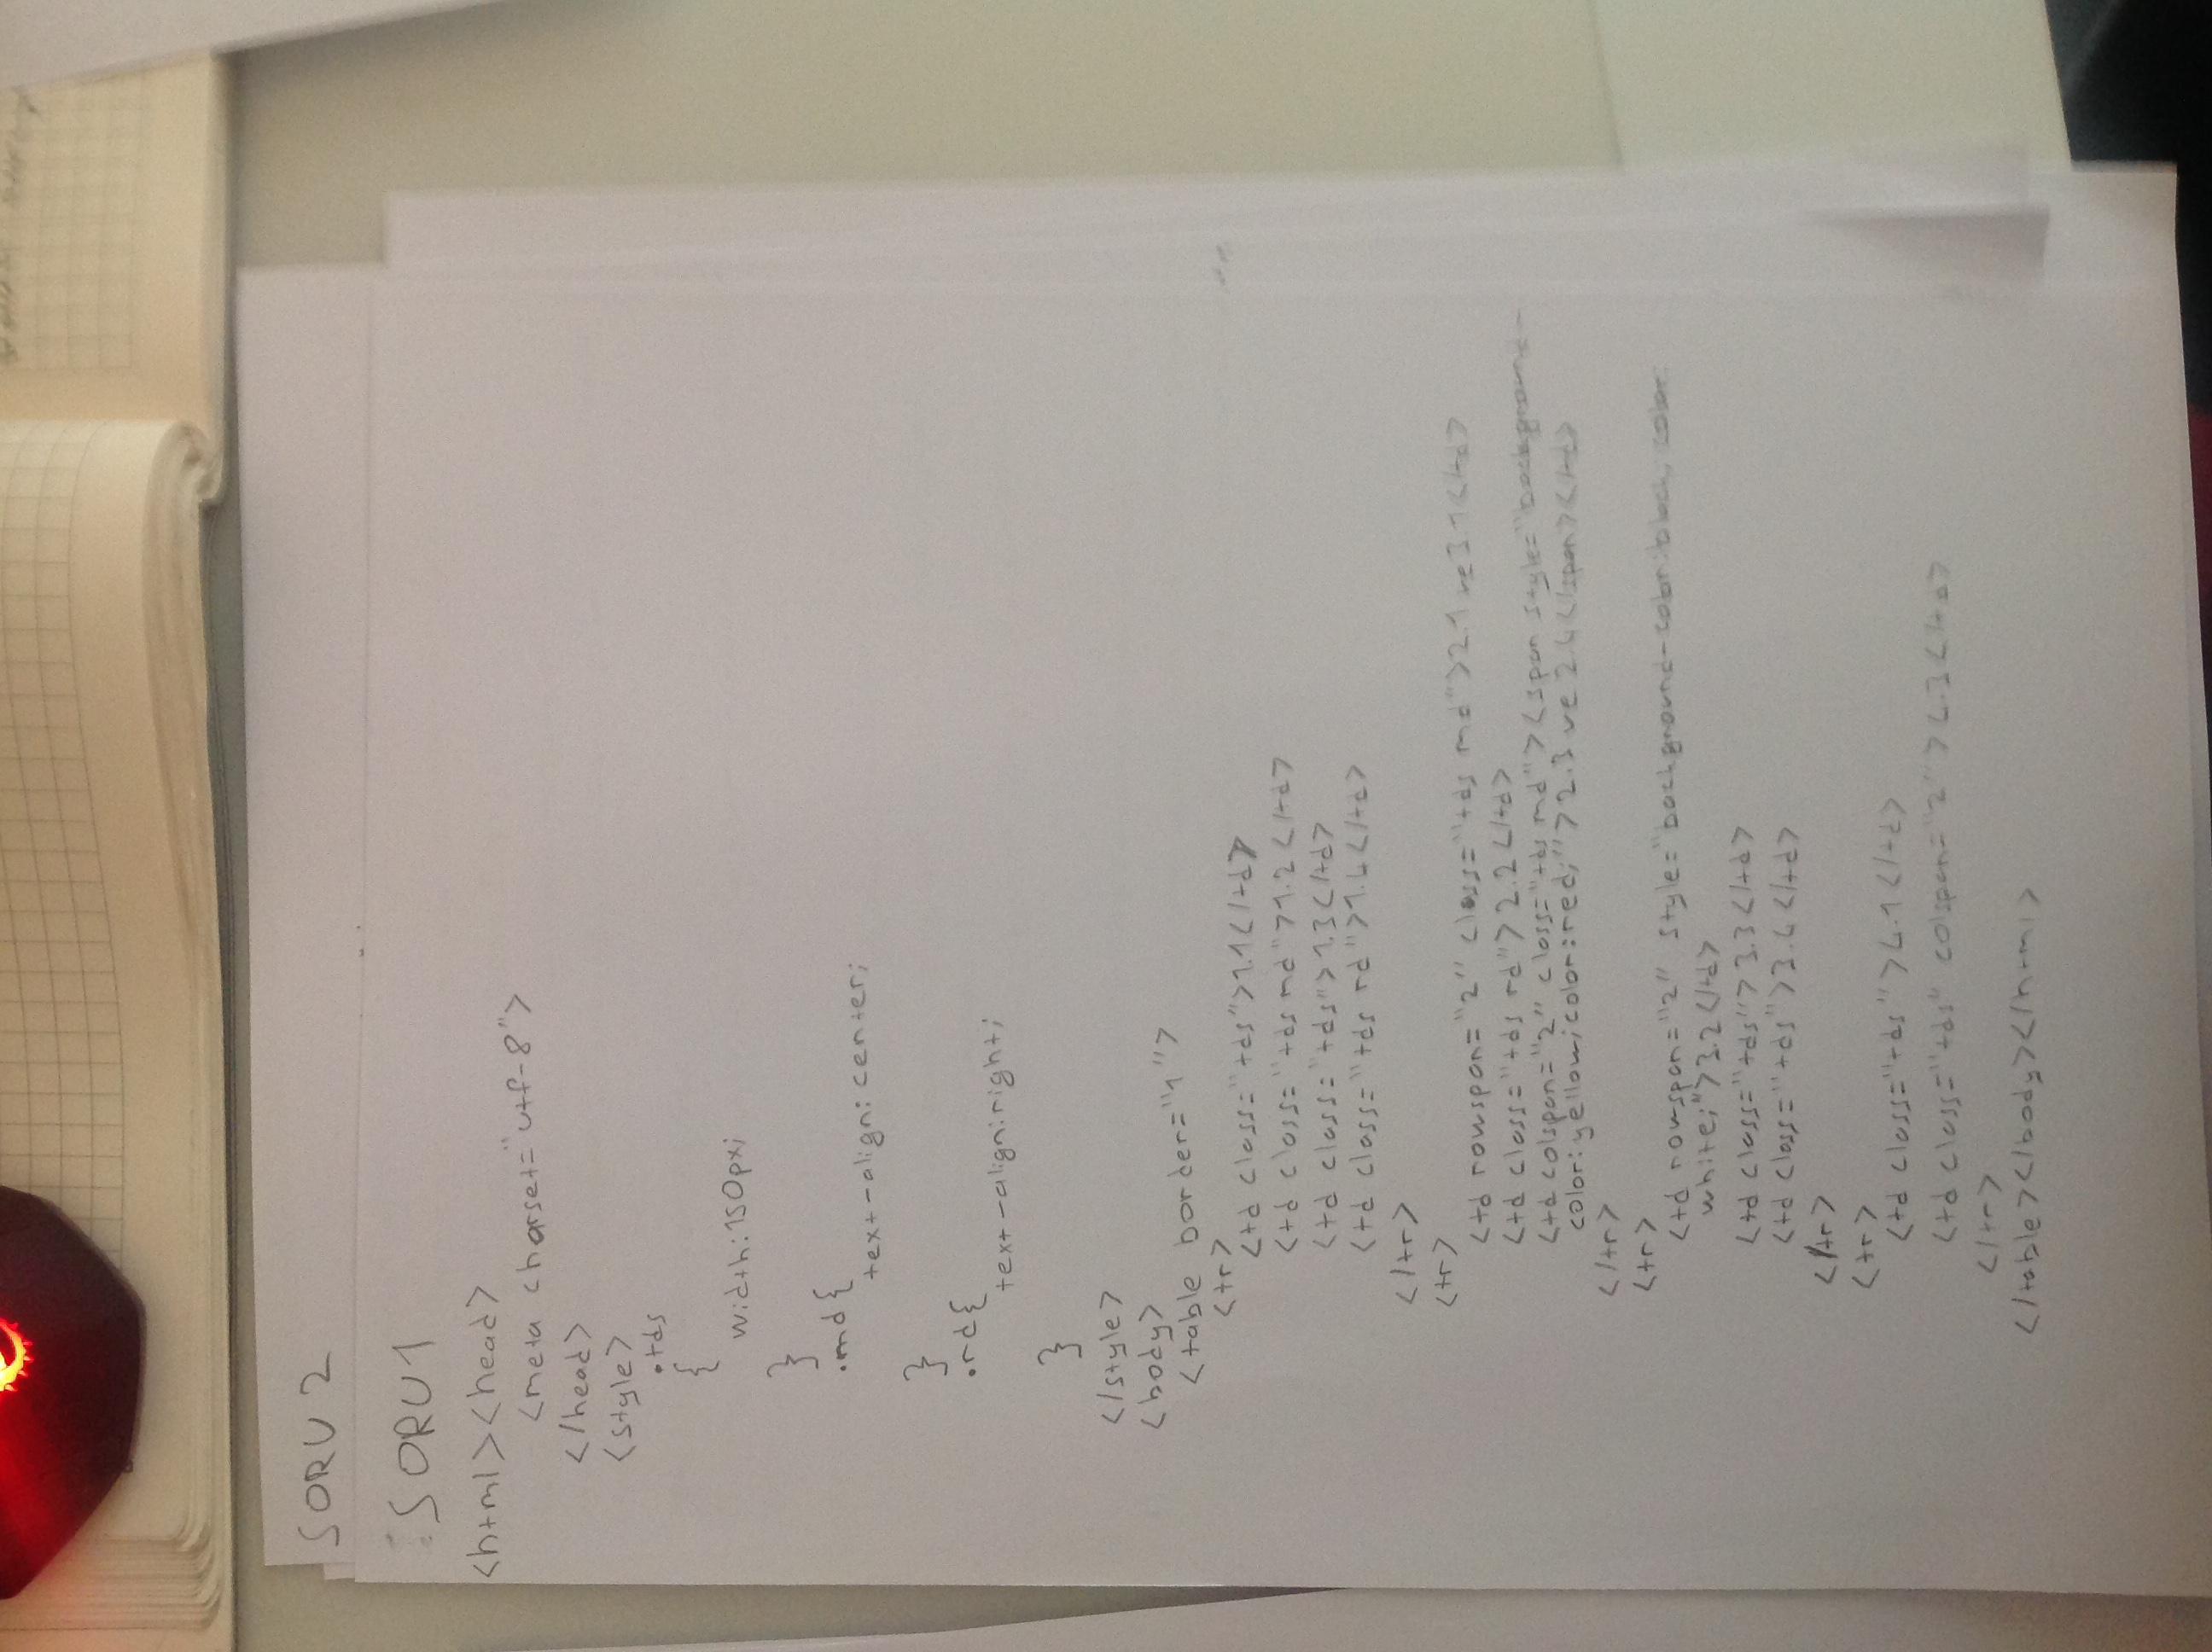 SORU 2
SORU1
<html><head>
<meta charset="utf-8">
</head>
<style>
.tds
{
width:150px;
}
.md{
text-align: center;
}
.rd{
text-align:right;
}
</style>
<body>
<table border="1">
<tr>
<td class="tds">1.1</td>
<td class="tds md">1.2</td>
<td class="tds">1.3</td>
<td class="tds rd">1.4</td>
</tr>
<tr>
<td rowspan="2" class="tds md">2.1 ve 3.1</td>
<td class="tds rd">2.2</td>
<td colspan="2" class="tds md"><span style="background-
color:yellow;color:red;">2.3 ve 2.4</span></td>
</tr>
<tr>
<td rowspan="2" style="background-color:black; color:
white;">3.2</td>
<td class="tds">3.3</td>
<td class="tds">3.4</td>
</tr>
<tr>
<td class="tds">4.1</td>
<td class="tds" colspan="2">4.3</td>
</tr>
</table></body></html>